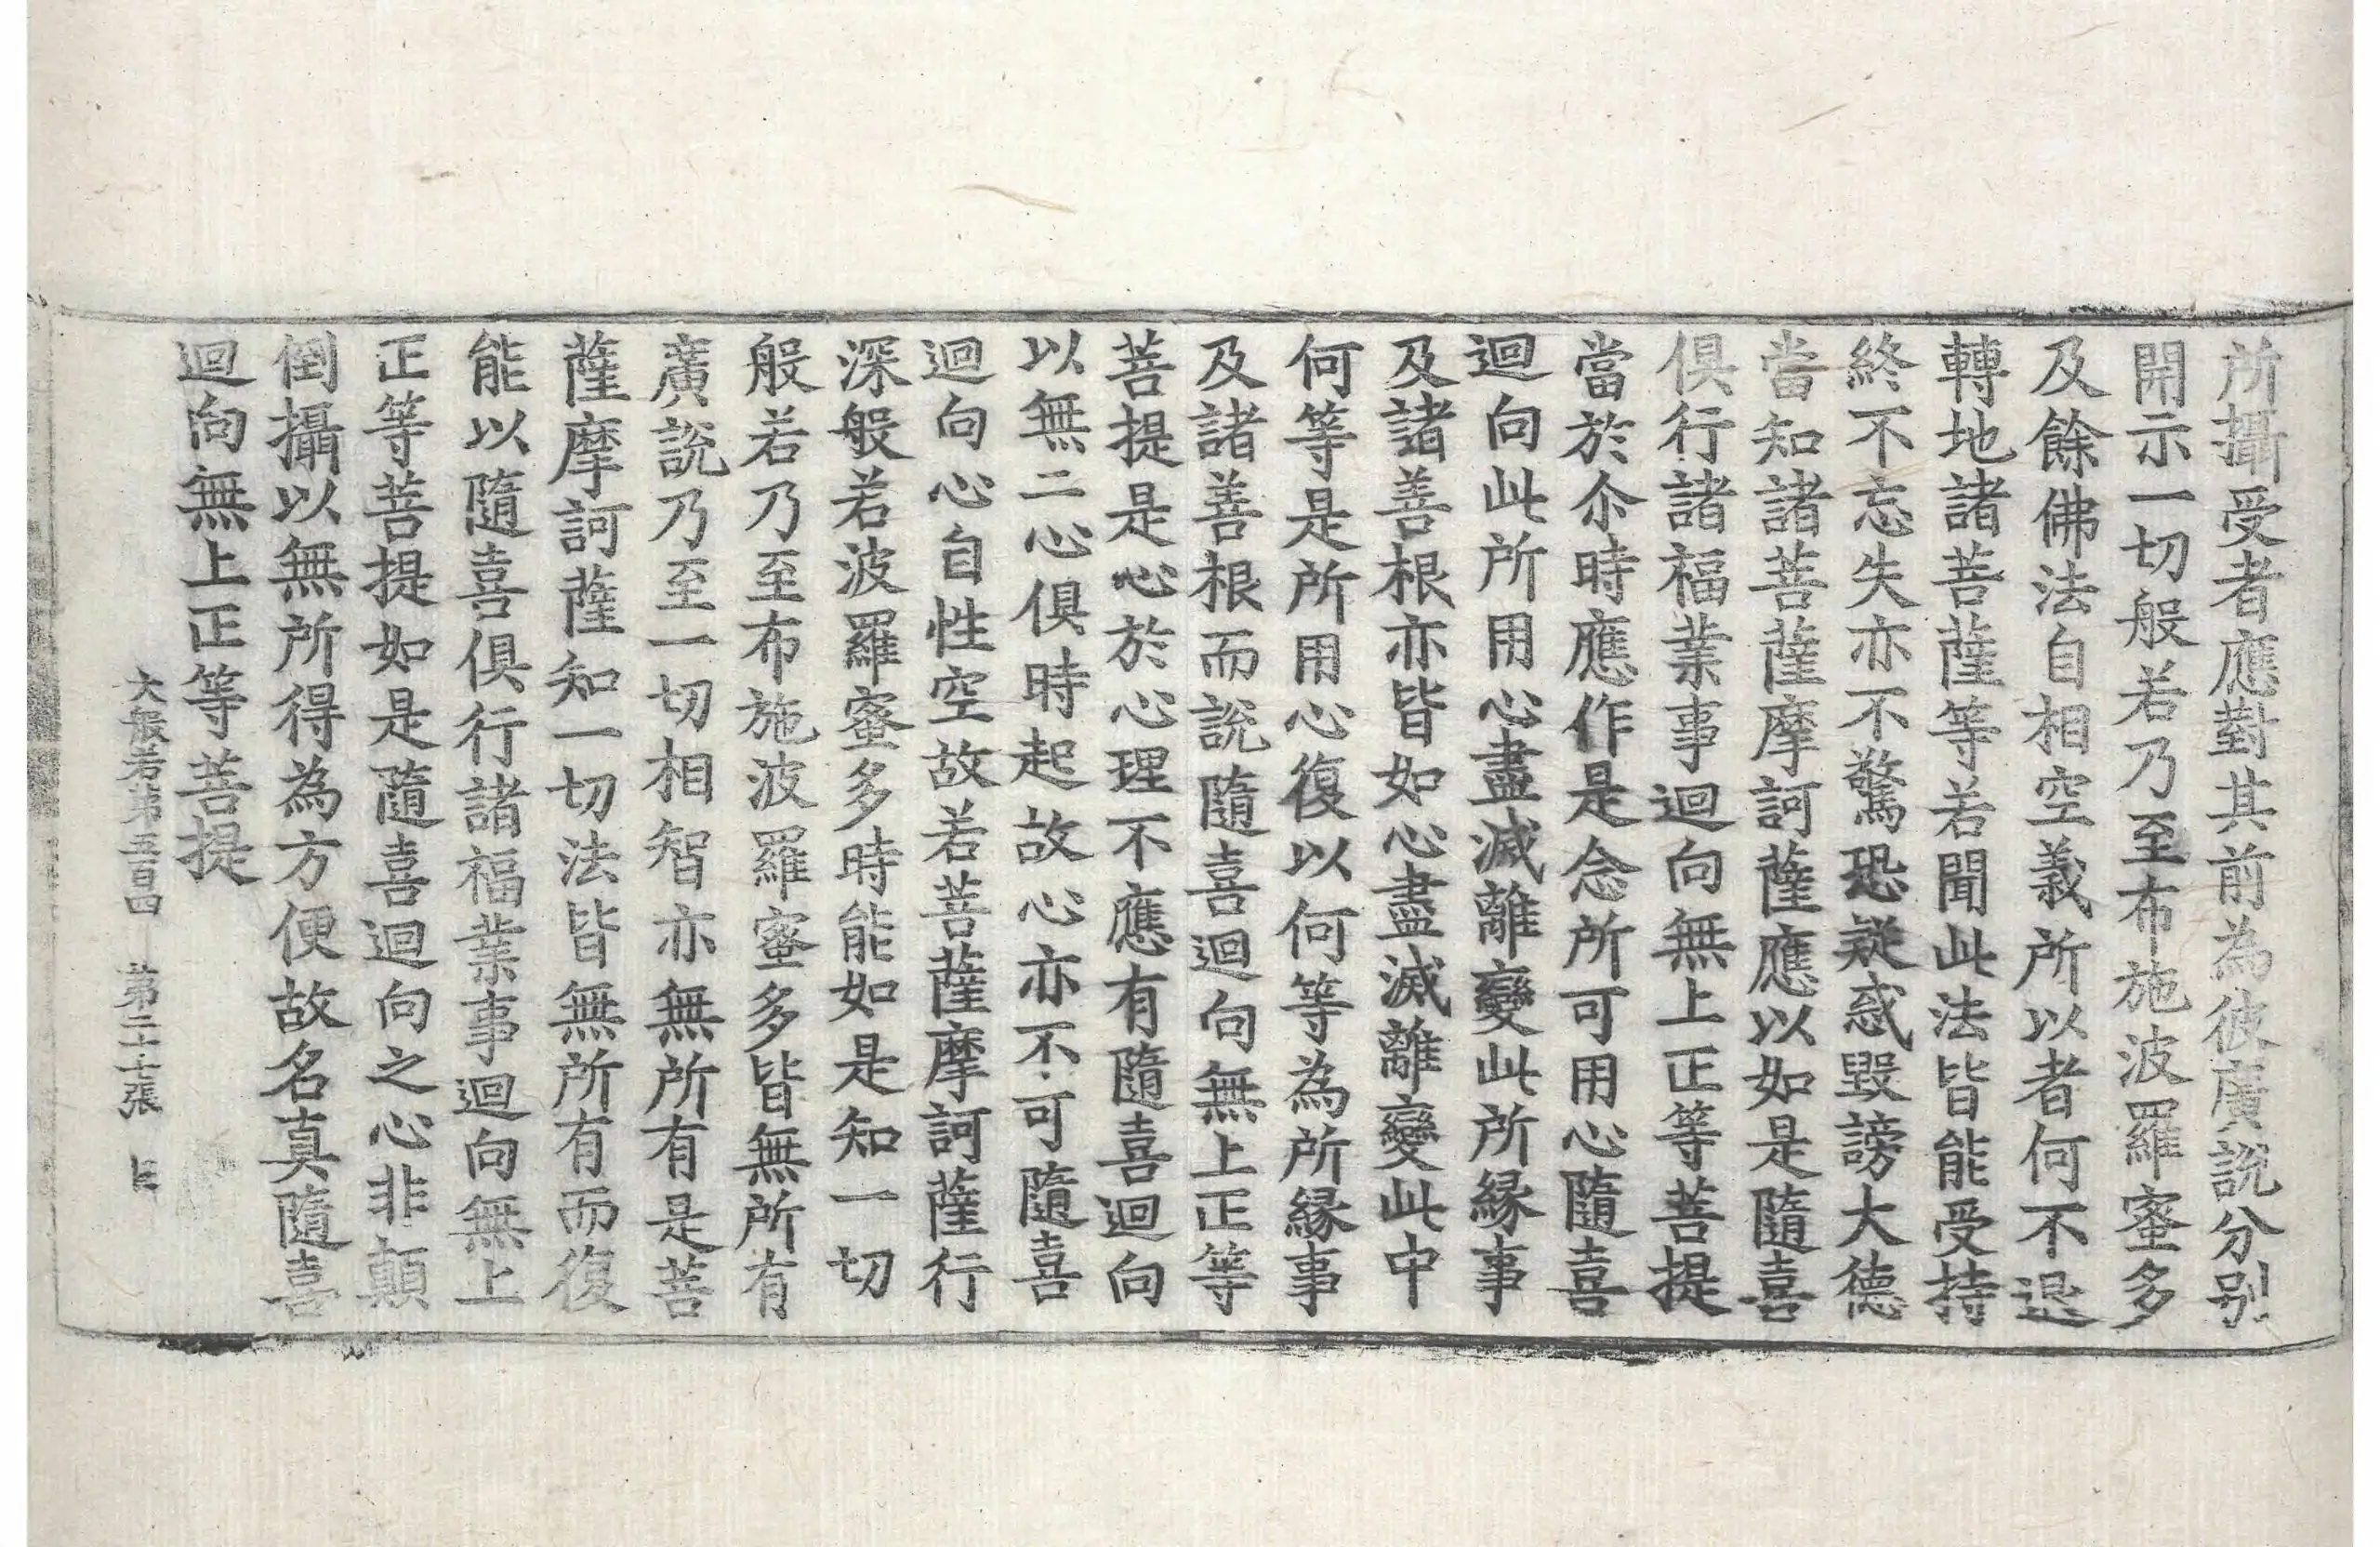 所攝受者應對其前為彼廣説分別
開示一切般若乃至布施波羅蜜多
及餘佛法自相空義所以者何不退
轉地諸菩薩等若聞此法皆能受持
終不忘失亦不驚恐疑惑毀謗大德
當知諸菩薩摩訶薩應以如是隨喜
俱行諸福業事迴向無上正等菩提
當於尒時應作是念所可用心隨喜
迴向此所用心盡滅離變此所緣事
及諸善根亦皆如心盡滅離變此中
何等是所用心復以何等為所緣事
及諸善根而説隨喜迴向無上正等
菩提是心於心理不應有隨喜迴向
以無二心俱時起故心亦不可隨喜
迴向心自性空故若菩薩摩訶薩行
深般若波羅蜜多時能如是知一切
般若乃至布施波羅蜜多皆無所有
廣説乃至一切相智亦無所有是菩
薩摩訶薩知一切法皆無所有而復
能以隨喜俱行諸福業事迴向無上
正等菩提如是隨喜迴向之心非顛
倒攝以無所得為方便故名真隨喜
迴向無上正等菩提
大般若第五百四 第二十張